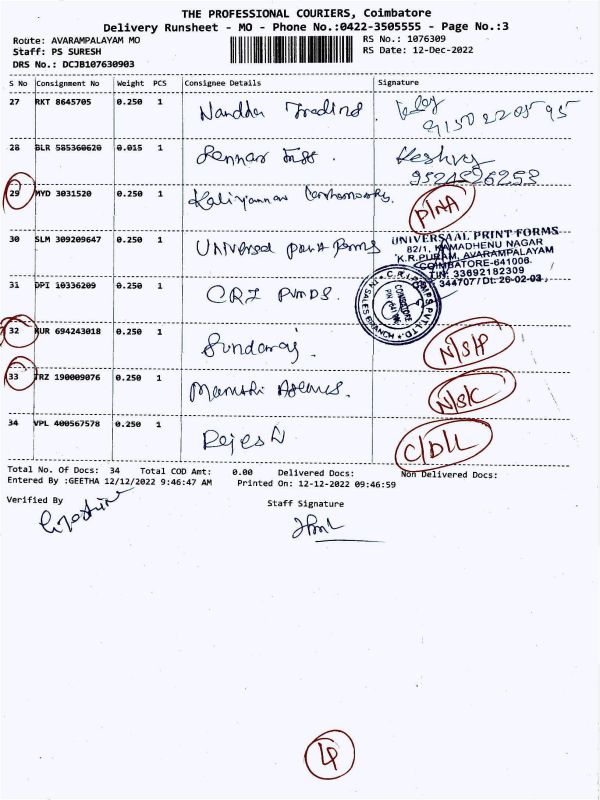 THE PROFESSIONAL COURIERS, Coimbatore
Delivery Runsheet - MO - Phone No.:0422-3505555 - Page No.:3
Route: AVARAMPALAYAM MO
RS No.: 1076309
Staff: PS SURESH
RS Date: 12-Dec-2022
DRS No.: DCJB107630903
S No Consignment No Weight PCS Consignee Details Signature
27 RKT 8645705 0.250 1 Nandha Trading
9150220595
28 BLR 585360620 0.015 1
9524596258
29 MYD 3031520 0.250 1 Kaliyannan
P/NA
30 SLM 309209647 0.250 1 Universal Print Forms
UNIVERSAAL PRINT FORMS
82/1, KAMADHENU NAGAR
K.R.PURAM, AVARAMPALAYAM
COIMBATORE-641006.
TIN: 33692182309
344707 / Dt: 26-02-03
31 DPI 10336209 0.250 1 CRI PUMPS.
32 KUR 694243018 0.250 1 Sundaraj.
N/S/P
33 TRZ 190009076 0.250 1
N/S/C
34 VPL 400567578 0.250 1 Rajesh
C/D/L
Total No. Of Docs: 34 Total COD Amt: 0.00 Delivered Docs: Non Delivered Docs:
Entered By :GEETHA 12/12/2022 9:46:47 AM Printed On: 12-12-2022 09:46:59
Verified By
Staff Signature